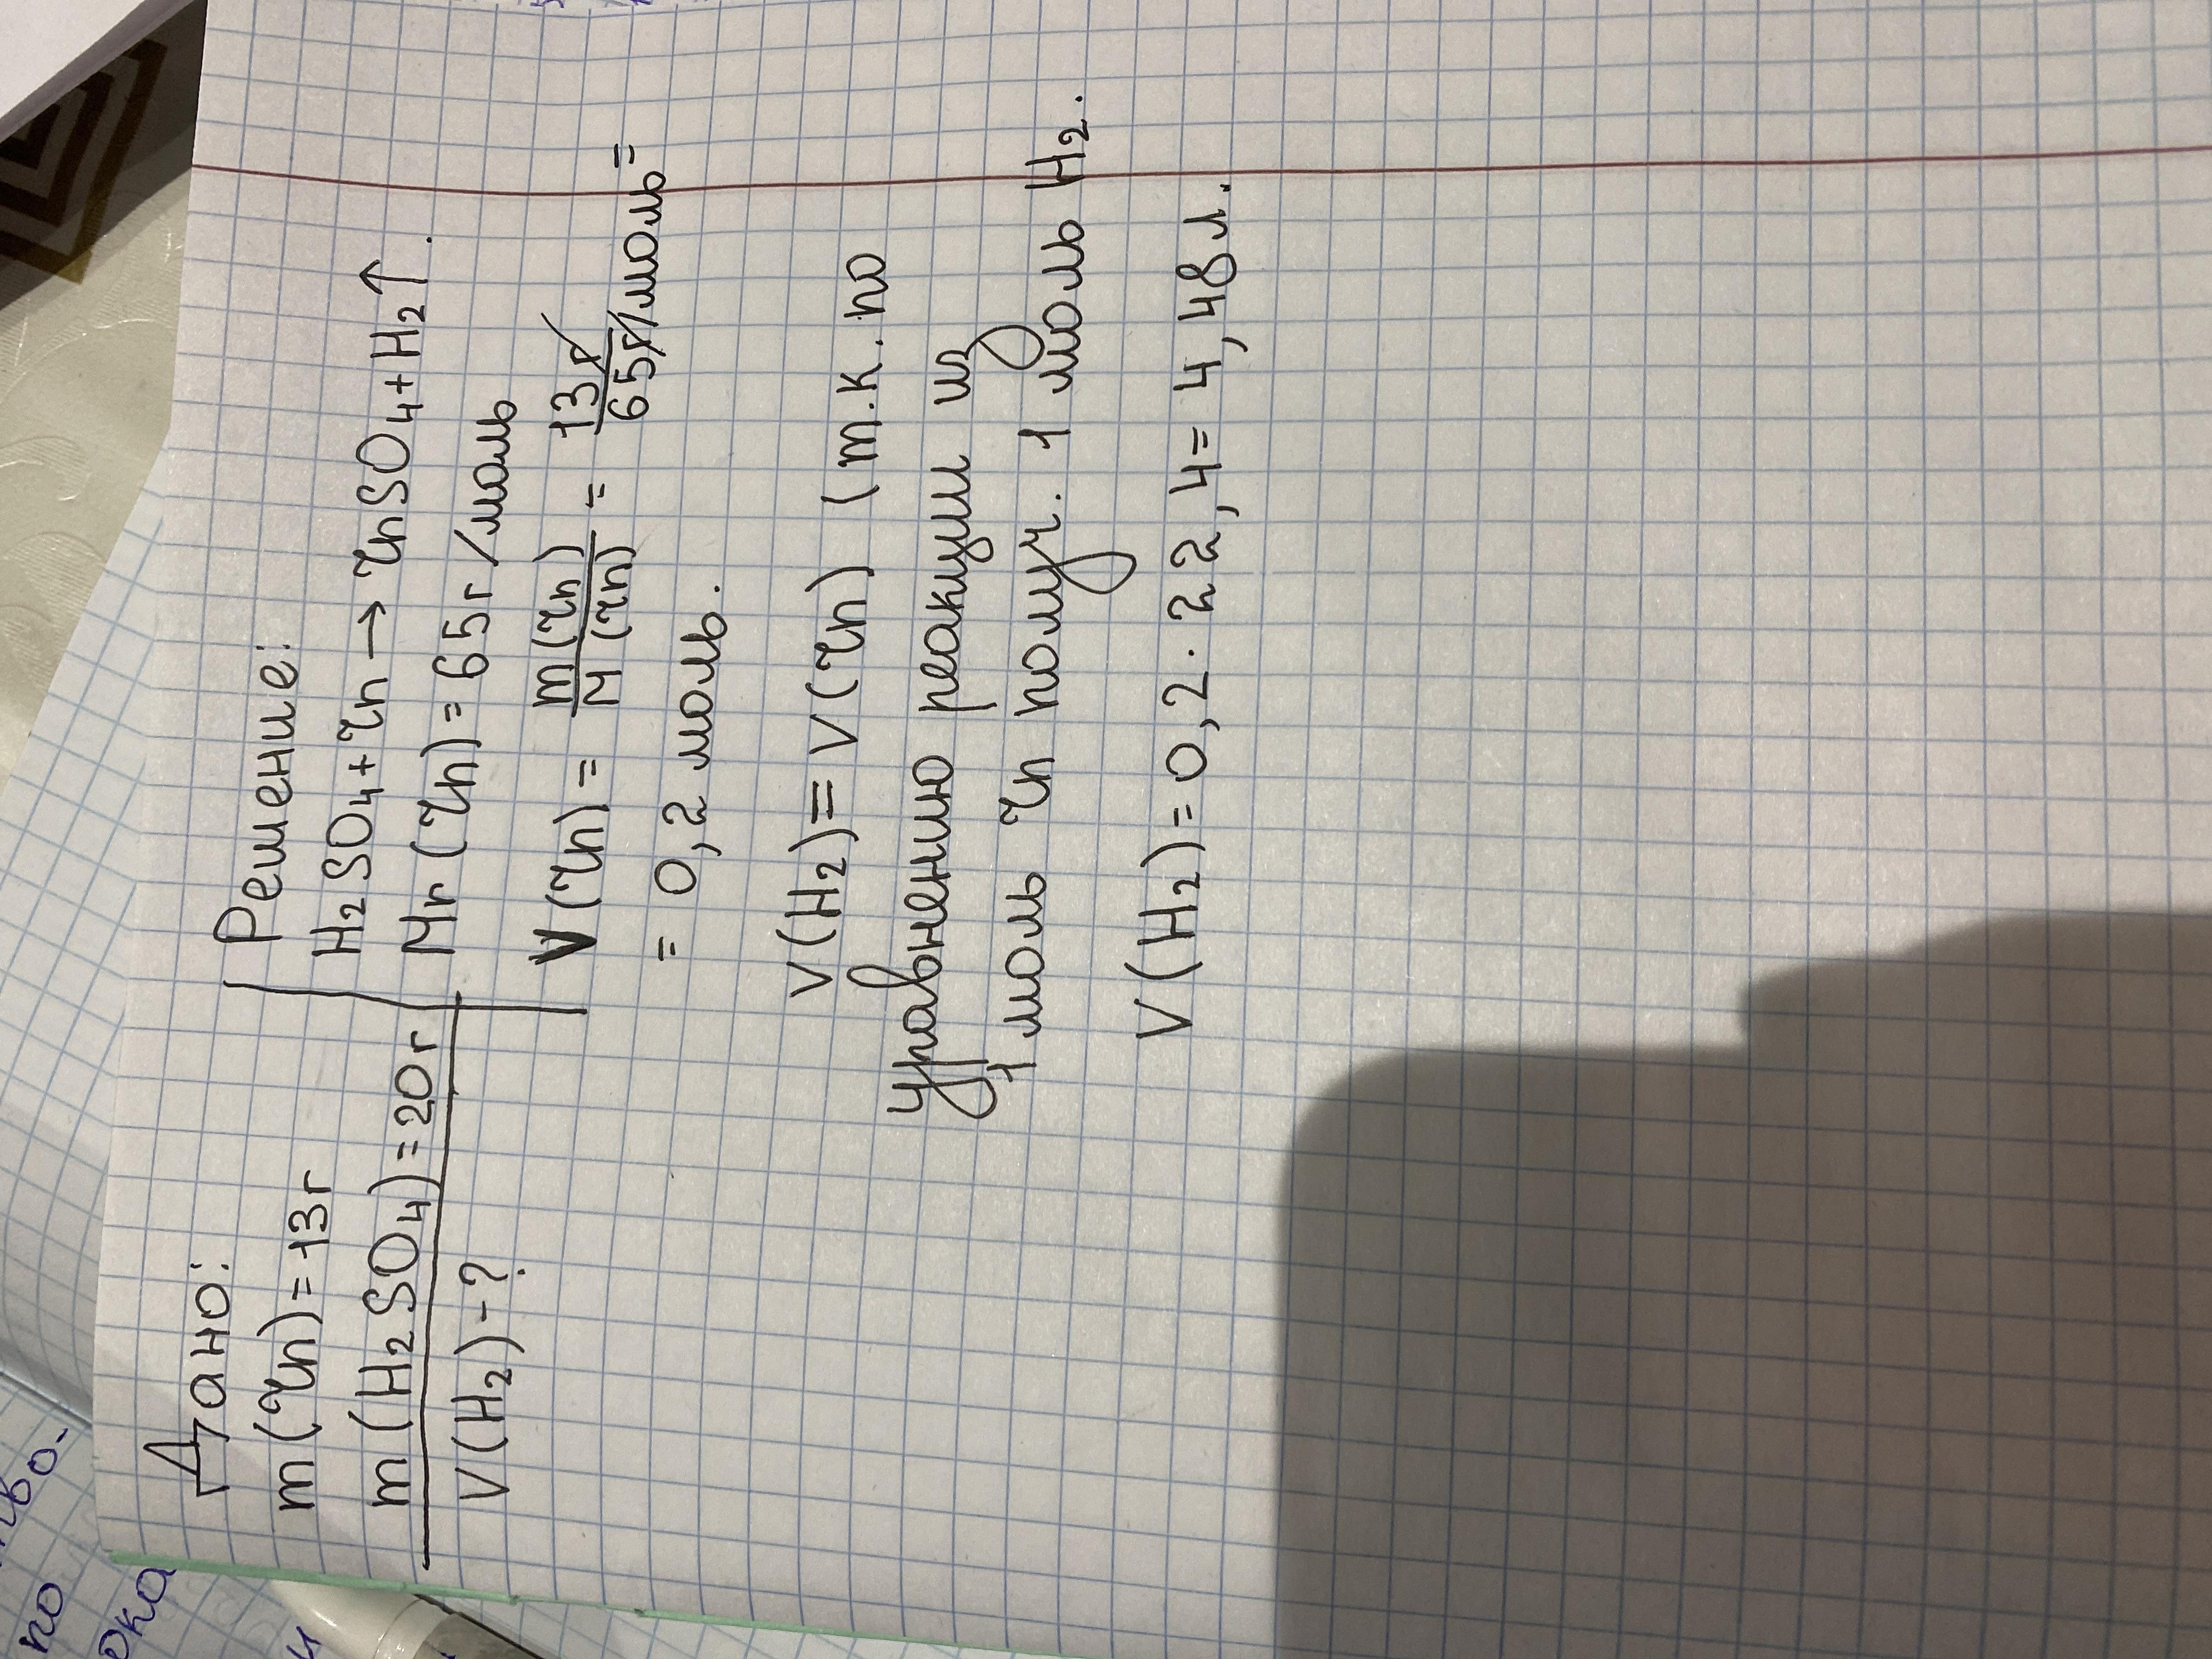 Дано:
m(Zn)=13г
m(H₂SO₄)=20г
V(H₂)-?
Решение:
H₂SO₄+Zn→ZnSO₄+H₂↑.
Mr(Zn)=65г/моль
V(Zn)= m(Zn)/M(Zn) = 13г/65г/моль=
= 0,2 моль.
V(H₂)=V(Zn) (т.к. по
уравнению реакции из
1 моль Zn получ. 1 моль H₂.
V(H₂)=0,2·22,4=4,48л.
по